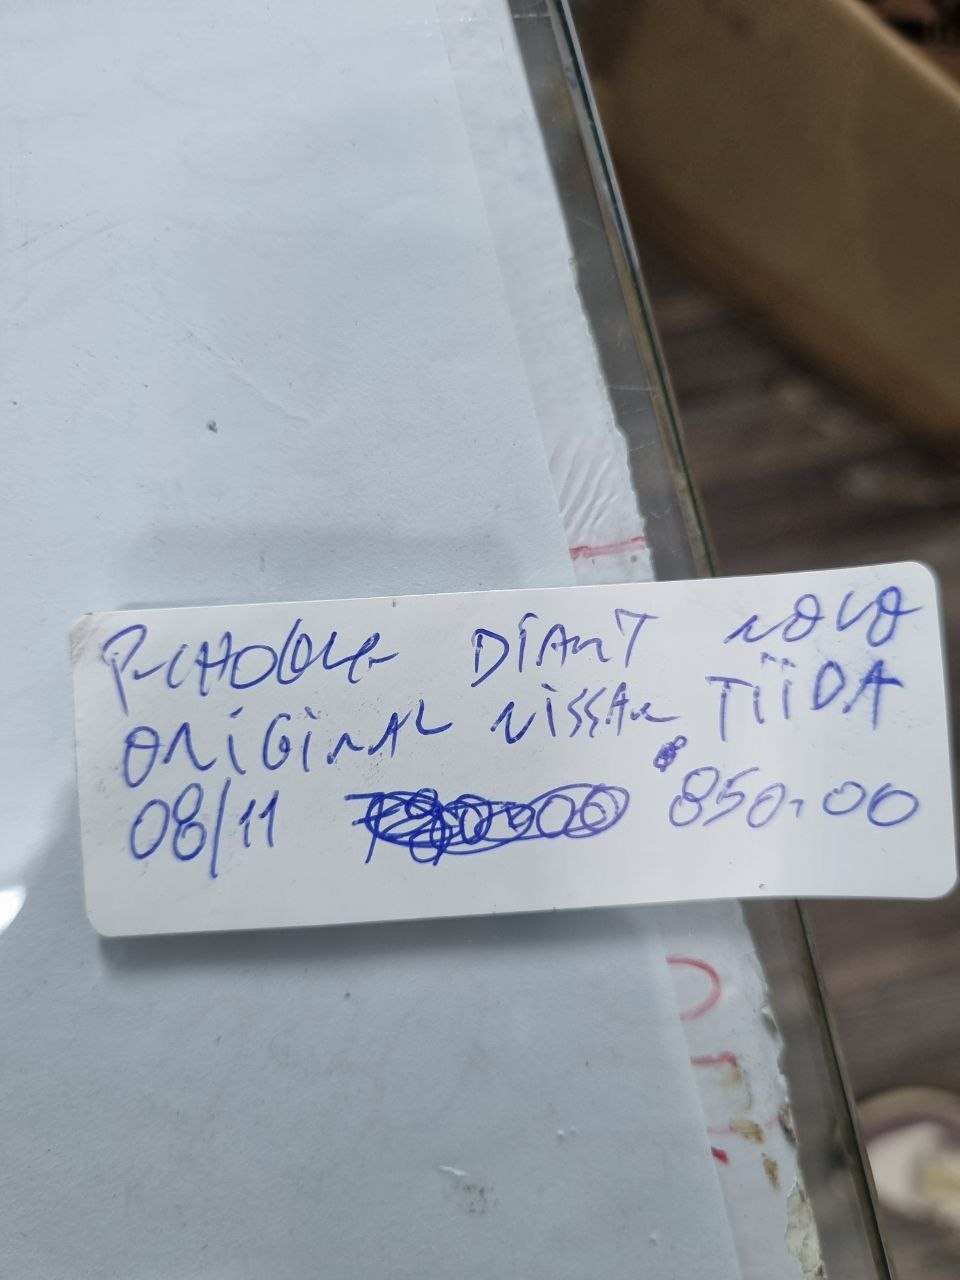 P-CHOQUE DIANT NOVO
ORIGINAL NISSAN TIIDA
08/11 850,00